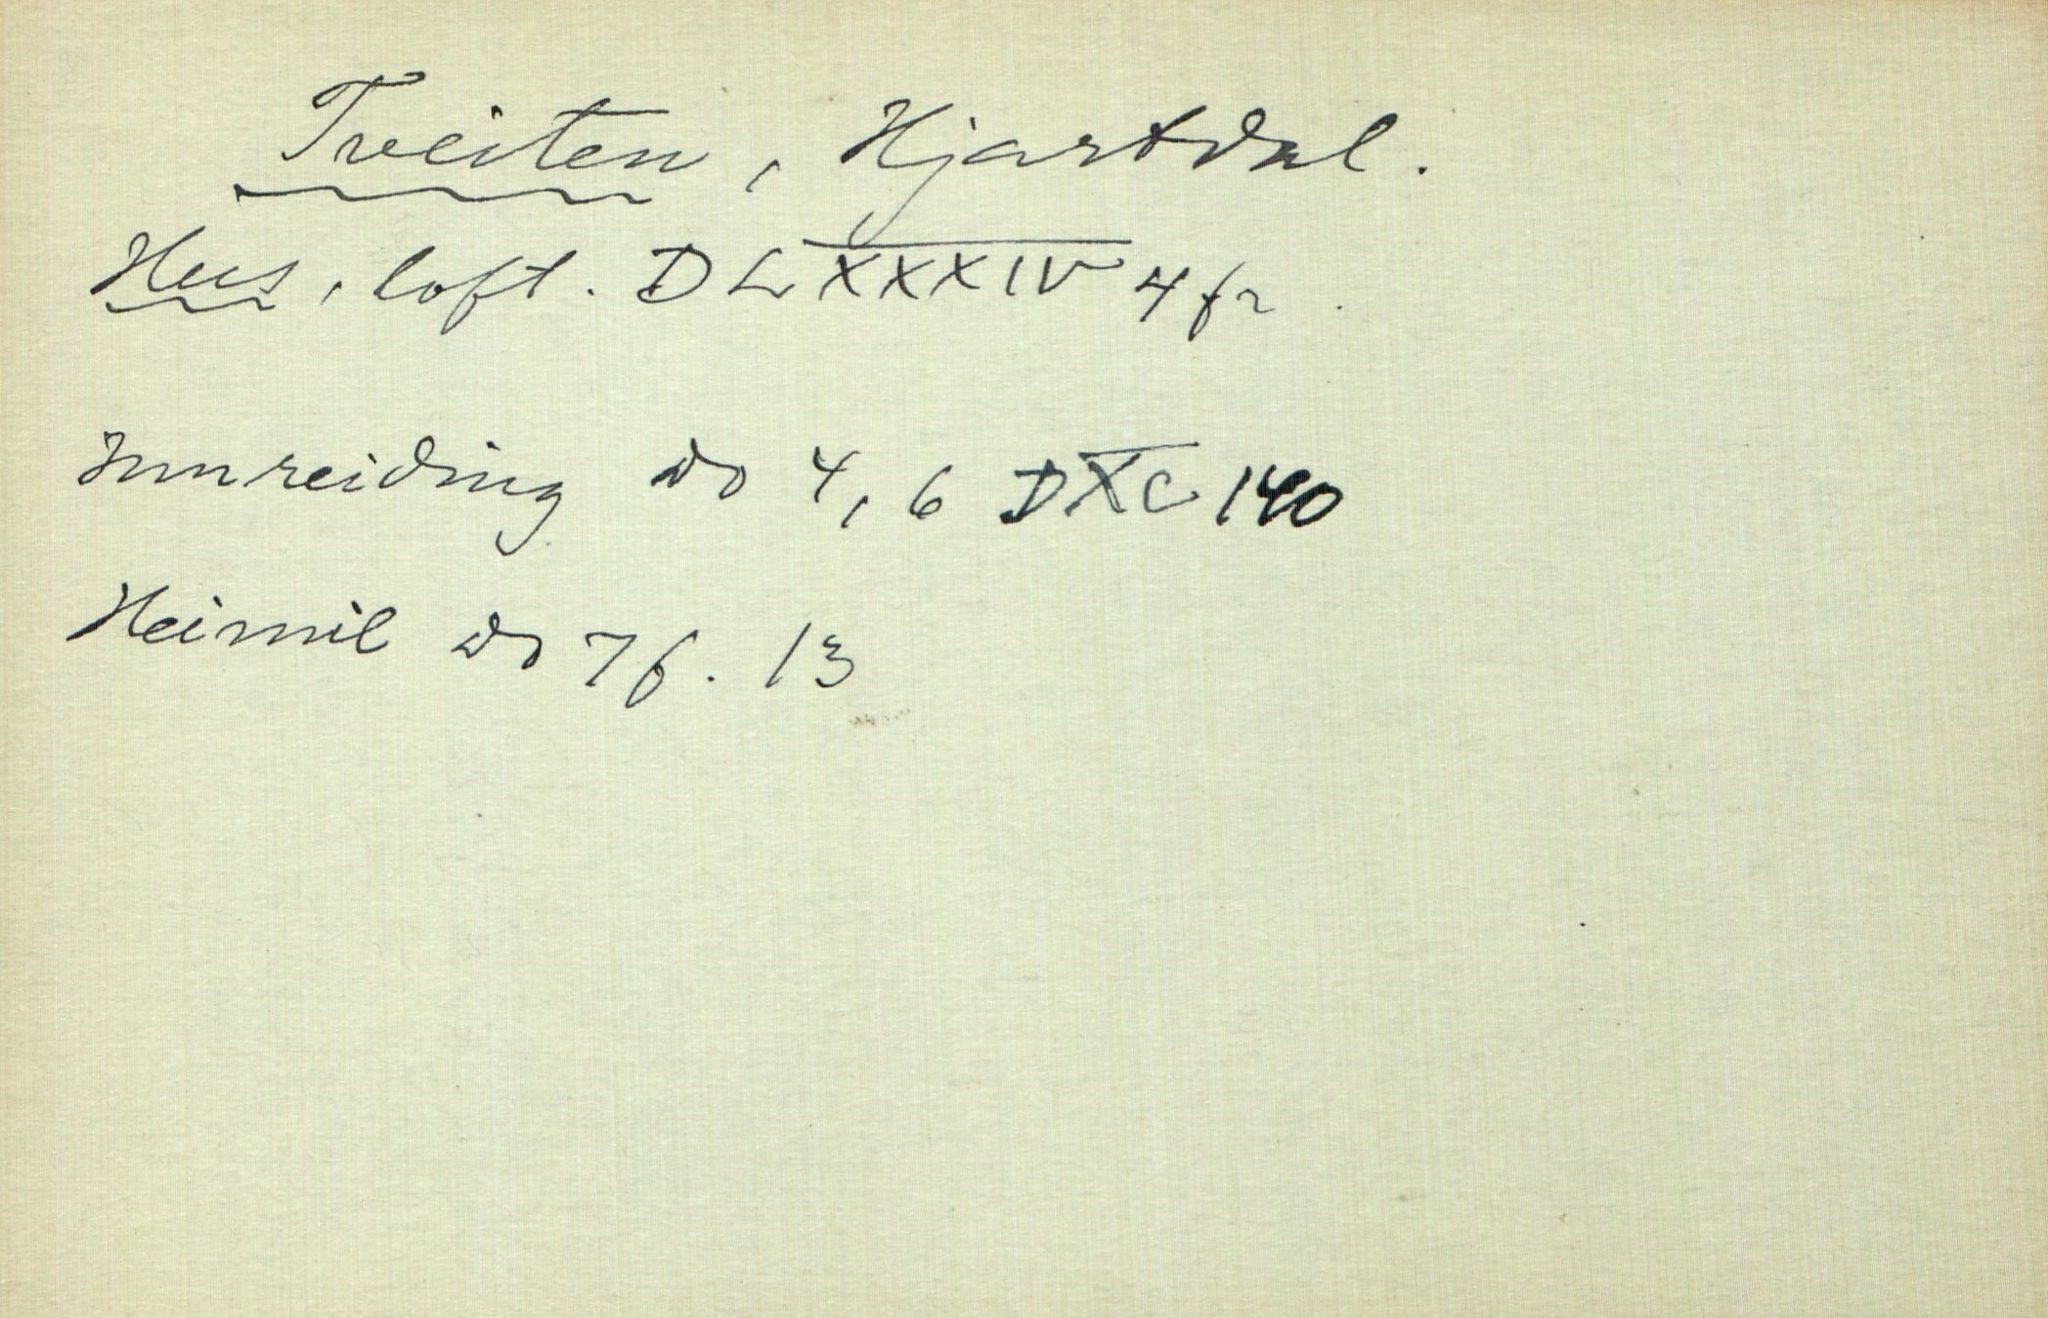 Tveiten, Hjartdal.
Hus, loft. D LXXXIV 4 fr
Innreiding do 4, 6 D XC 140
Heimil do 7f. 13